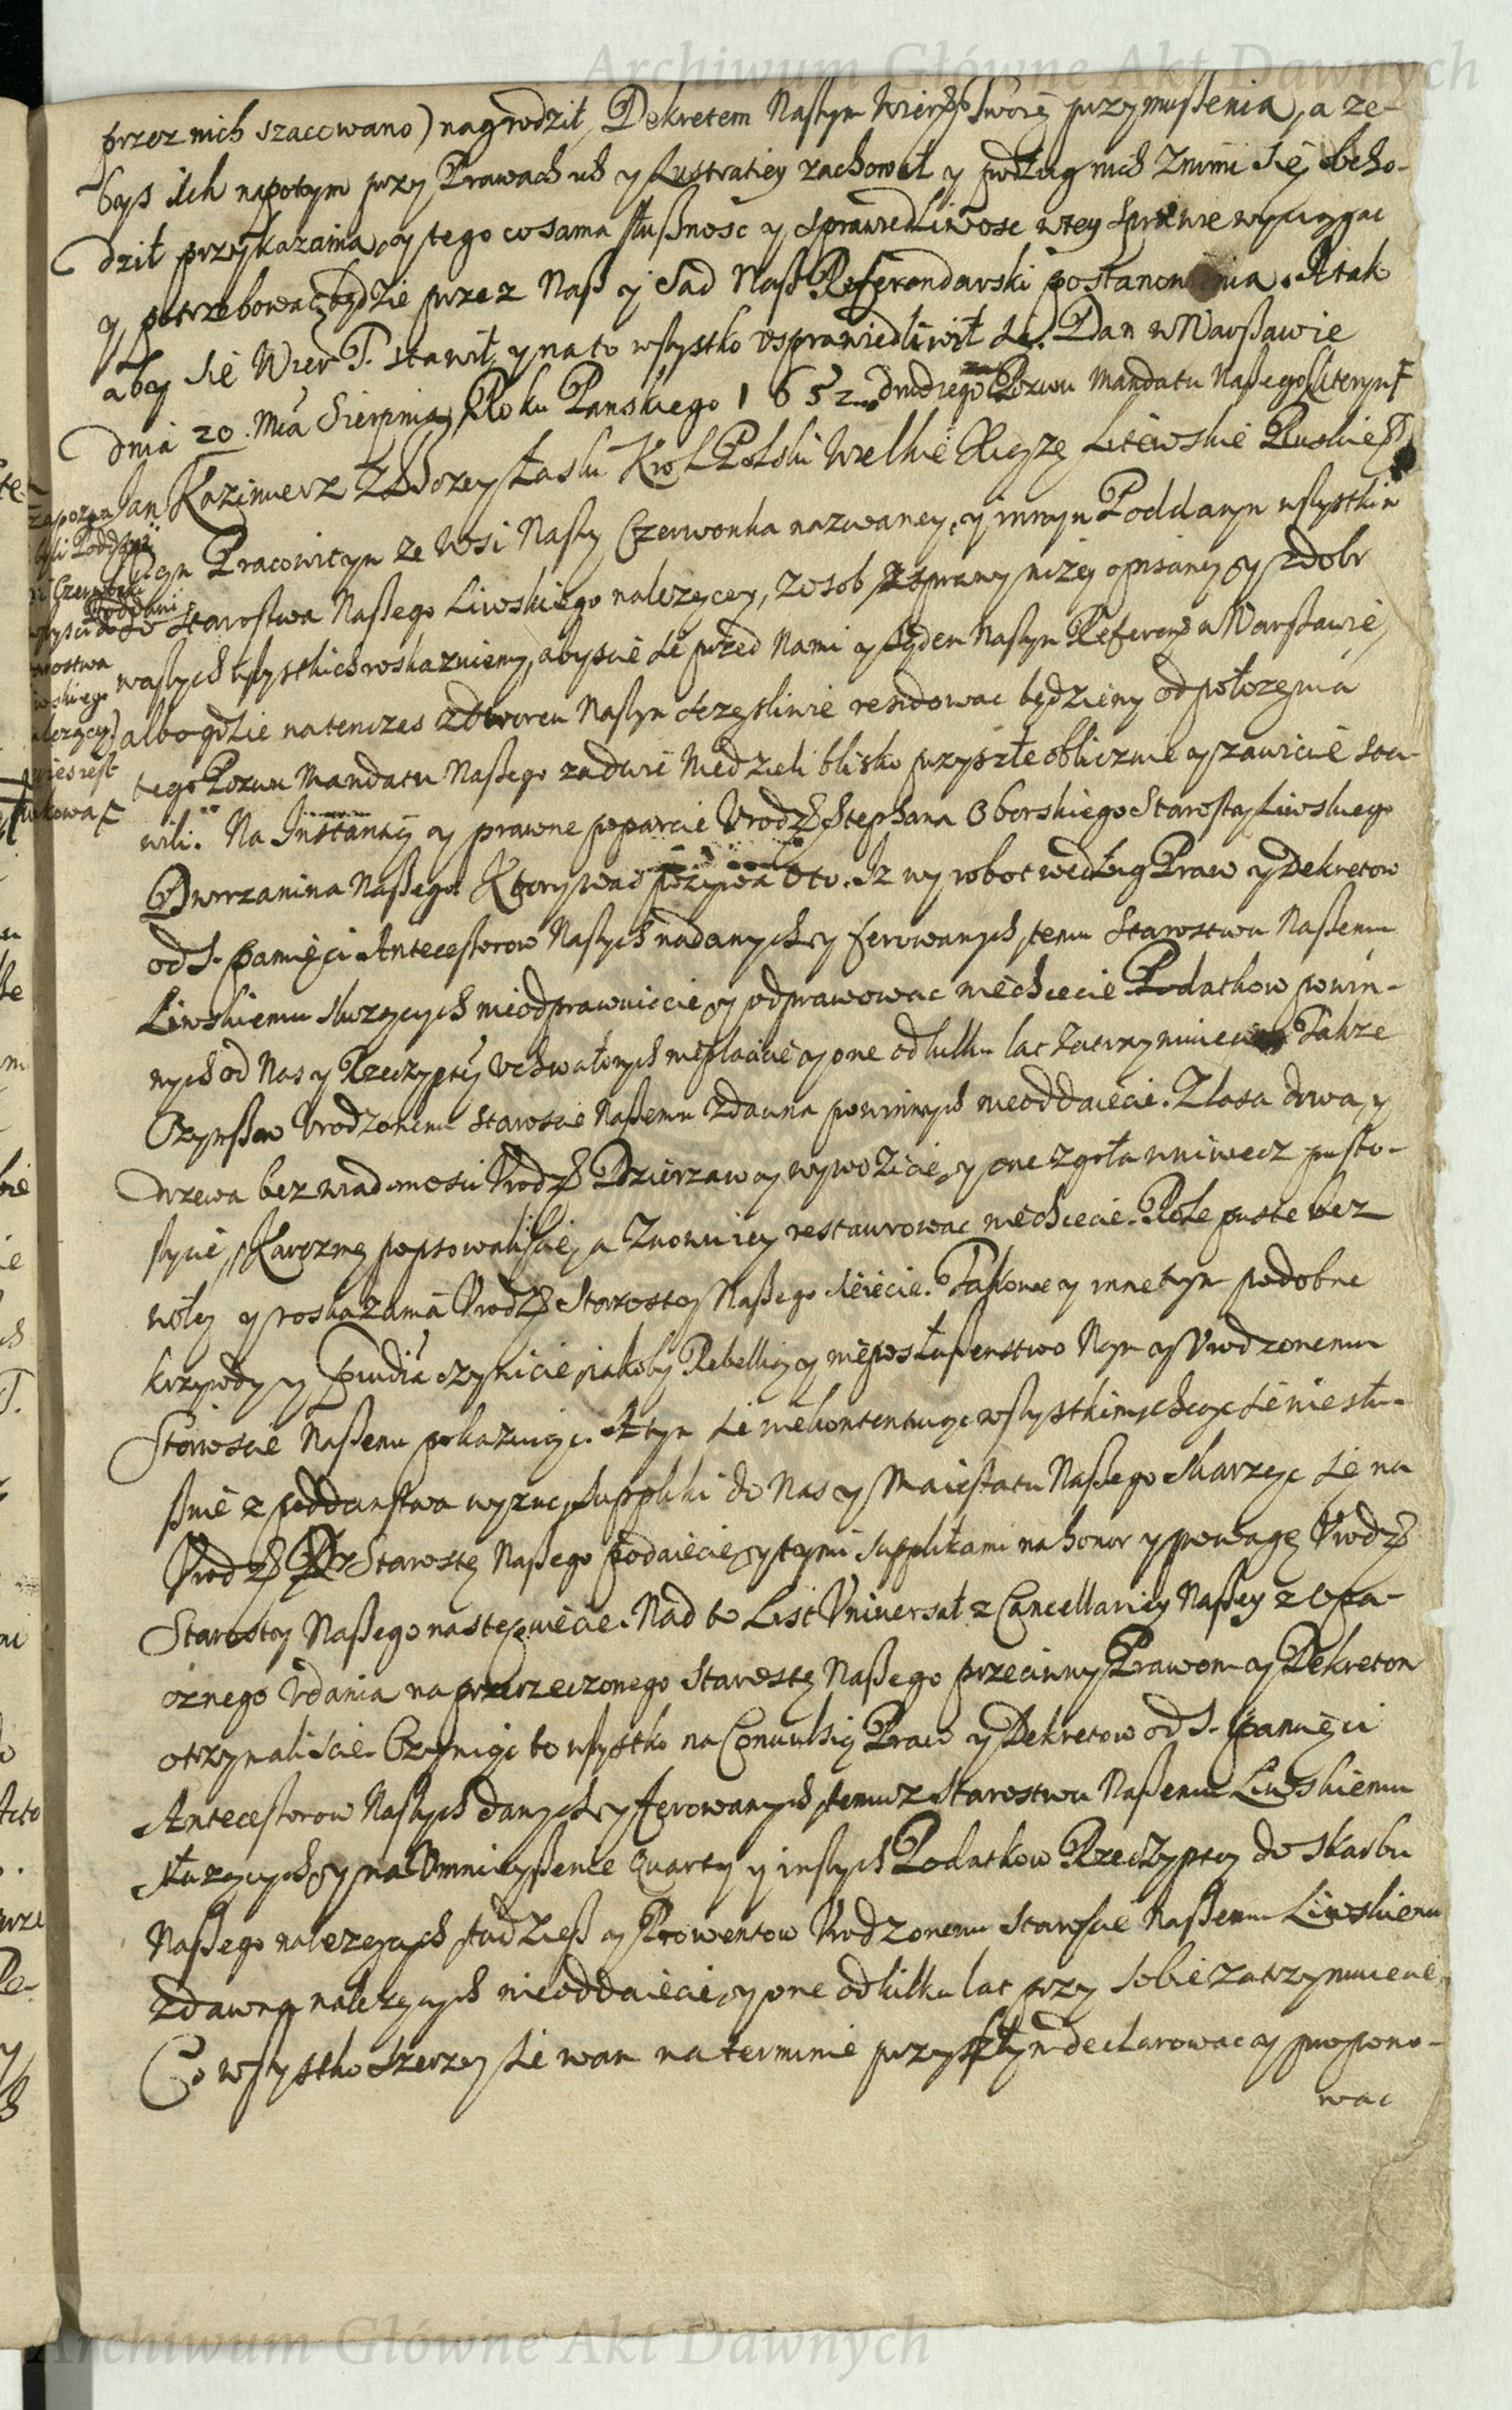 Archiwum Główne Akt Dawnych
przez nich szacowano) nagrodził, Dekretem Naszym Wierz. swoię przymuszenia, a ze-
byś ich napotym przy Prawach ich y Lustratiey zachował y podług nich z nimi się obcho-
dził przykazania, y tego co sama słuszność y sprawiedliwosc wtey sprawie wyciągac
y potrzebowac będzie przez Nasz y Sad Nasz Referendarski postanowienia. A tak
abey sie Wier. T. stawił, y na to wszystko vsprawiedliwił się. Dan w Warszawie
dnia 20. Mca Sierpnia, Roku Panskiego 1652. drudiego Pozwu Mandatu Naszego
Jan Kazimierz z Bozey Łaski Krol Polski Wielkie Xiązę Litewskie Ruskie
Pracowitym ze Wsi Naszy Czerwonka nazwaney, y innym Poddanym wszystkim
do Starostwa Naszego Liwskiego nalezącey, z osob z sprawy nizey opisaney y z dobr
waszych wszystkich roskazuiemy, abyscie sie przed Nami y Sądem Naszym Referen. w Warszawie,
albo gdzie natenczas z dworem Naszym szczęsliwie residowac będziemy od połozenia
tego Pozwu Mandatu Naszego za dwie Niedzieli blisko przyszłe oblicznie y zawicie sta-
wili. Na Instantią y prawne poparcie Vrodz. Stephana Oborskiego Starosty Liwskiego
Dworzanina Naszego. Ktory was pozywa o to. Iz wy robot według Praw y Dekretow
od S. Pamięci Antecessorow Naszych nadanych y ferowanych, temu Starostwu Naszemu
Liwskiemu sluzących nieodprawuiecie y odprawowac niechcecie Podatkow powin-
nych od Nas y Rzeczyptey vchwalonych nie płacicie y one od kilku lat zatrzymuiecie Takze
Czynszow Vrodzonemu Staroscie Naszemu zdawna powinnych nieoddaiecie. Z lasu drwa y
drzewa bez wiadomosci Vrodz. Dzierzawcy wywozicie, y one zgoła wniwecz pusto-
szycie, Karczmę popsowaliscie, a znowu iey restaurowac niechcecie. Role puste bez
woley y roskazania Vrodz. Starosty Naszego sieiecie. Takowe y inne tym podobne
krzywdy y czynicie, iakoby Rebellią y nieposłuszenstwo Nam y Vrodzonemu
Staroscie Naszemu pokazuiąc. A tym sie niekontentuiąc wszystkim, chcąc sie niesłu-
sznie z poddanstwa wyzuc, Suppliki do Nas y Maiestatu Naszego skarząc się na
Vrodz. Starostę Naszego podaiecie, y tymi supplikami na honor y powagę Vrodz.
Starosty Naszego nastepuiecie. Nad to List Vniversał z Cancellariey Naszey z opa-
cznego Vdania na przerzeczonego Starostę Naszego przeciwny Prawom y Dekretom
otrzymaliscie. Czyniąc to wszystko na Convulsią Praw y Dekretow od S. Pamięci
Antecessorow Naszych danych y ferowanych, temuz Starostwu Naszemu Liwskiemu
słuzących, y na Vmnieyszenie Quarty y inszych Podatkow Rzeczyptey do Skarbu
Naszego nalezących, tudziesz y Prowentow Vrodzonemu Staroscie Naszemu Liwskiemu
zdawna nalezących nieoddaiecie, y one od kilku lat przy sobie zatrzymuiecie,
Co wszystko szerzey sie wam na terminie przyszłym declarowac y propono-
wac
Archiwum Główne Akt Dawnych